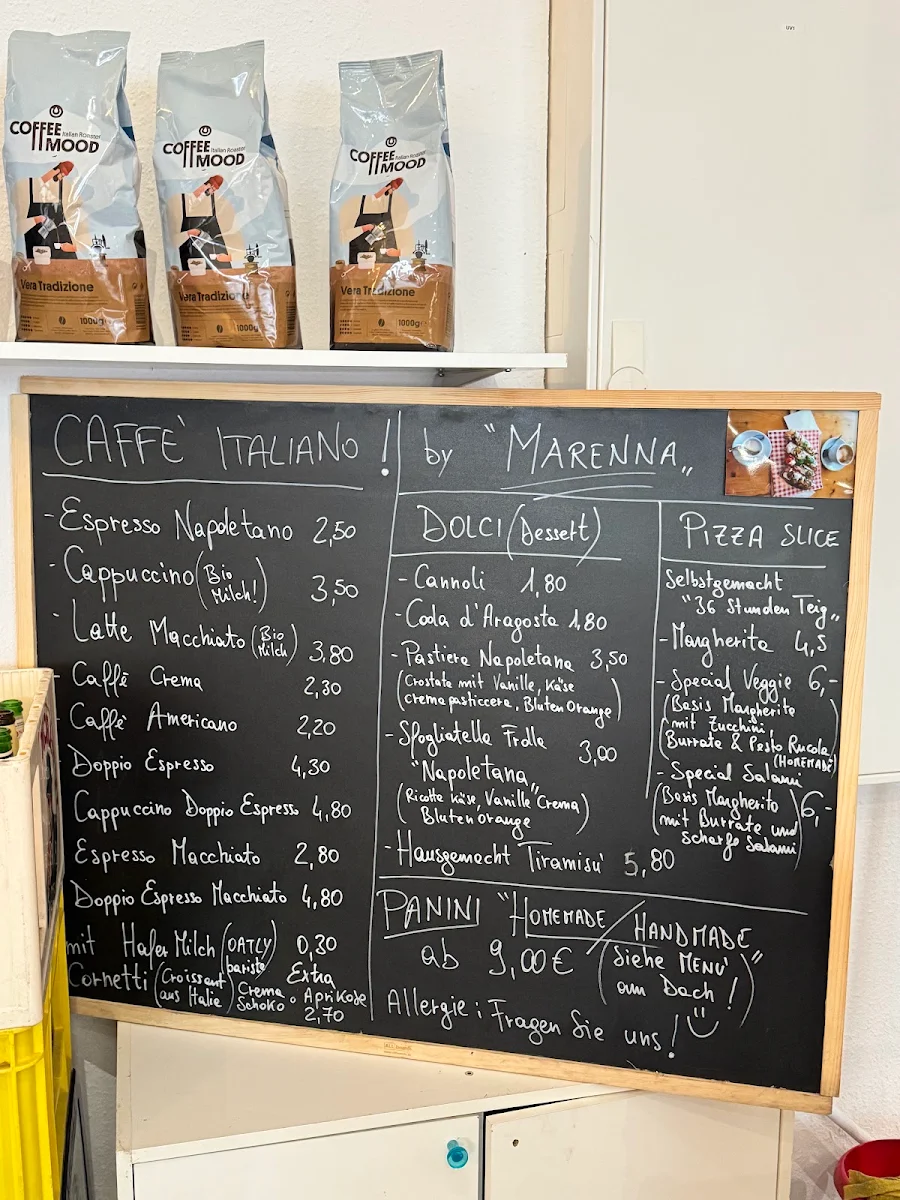 COFFEE
Italian Roaster
MOOD
Vera Tradizione
1000g
COFFEE
Italian Roaster
MOOD
Vera Tradizione
1000g
COFFEE
Italian Roaster
MOOD
Vera Tradizione
1000g
CAFFE` ITALIANO !
by "MARENNA„
- Espresso Napoletano 2,50
- Cappuccino (Bio Milch!) 3,50
- Latte Macchiato (Bio Milch) 3,80
- Caffè Crema 2,30
- Caffè Americano 2,20
- Doppio Espresso 4,30
Cappuccino Doppio Espresso 4,80
Espresso Macchiato 2,80
Doppio Espresso Macchiato 4,80
mit Hafer Milch (OATLY) 0,30
bariste Extra
Cornetti (Croissant aus Italie) Crema Schoko o Aprikose
2,70
DOLCI (Dessert)
- Cannoli 1,80
- Coda d'Aragosta 1,80
- Pastiera Napoletana 3,50
(Crostate mit Vanille, Käse
crema pasticcera, Bluten Orange)
- Sfogliatella Frolla 3,00
"Napoletana„
(Ricotta Käse, Vanille "Crema
Bluten Orange)
- Hausgemacht Tiramisu' 5,80
PIZZA SLICE
Selbstgemacht
"36 Stunden Teig„
- Margherita 4,5
- Special Veggie 6,-
(Basis Margherita
mit Zucchini,
Burrata & Pesto Rucola
(HOMEMADE)
- Special Salami
(Basis Margherita 6,-
mit Burrata und
Scharfe Salami)
PANINI "HOMEMADE / HANDMADE"
ab 9,00€ (Siehe MENU'
am Dach!)
Allergie: Fragen Sie uns!